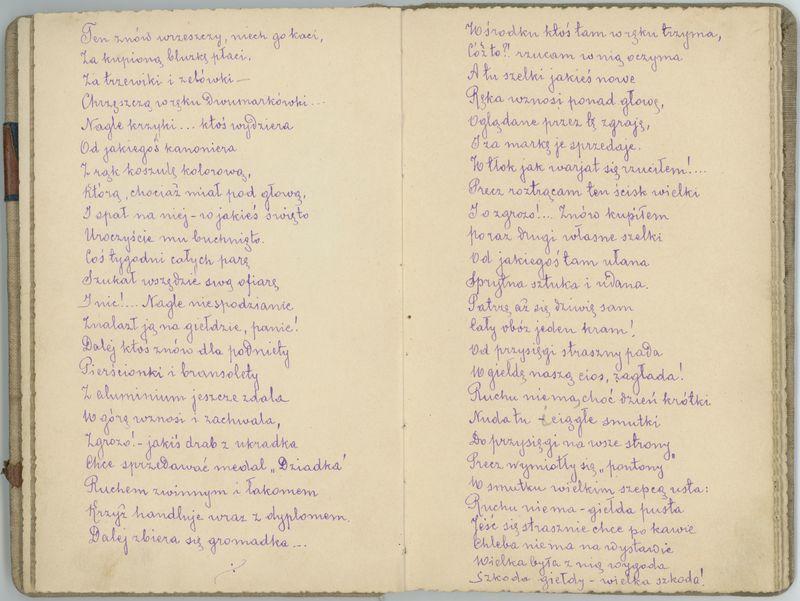 Ten znów wrzeszczy, niech go kaci,
Za kupioną bluzkę płaci.
Za trzewiki i zelówki —
Chrzęszczą w ręku Dwumarkówki...
Nagle krzyki... ktoś wydziera
Od jakiegoś kanoniera
Z rąk koszulę kolorową,
Którą, chociaż miał pod głową,
I spał na niej – w jakieś święto
Uroczyście mu buchnięto.
Coś tygodni całych parę
Szukał wszędzie swą ofiarę
I nic!... Nagle niespodzianie
Znalazł ją na giełdzie, panie!
Dalej ktoś znów dla podniety
Pierścionki i bransolety
Z aluminium jeszcze zdala
W górę wznosi i zachwala,
Zgrozo! – jakiś drab z ukradka
Chce sprzedawać medal „Dziadka"
Ruchem zwinnym i łakomem
Krzyż handluje wraz z dyplomem.
Dalej zbiera się gromadka...
W środku ktoś tam w ręku trzyma,
Cóż to?! rzucam w nią oczyma
A tu szelki jakieś nowe
Ręka wznosi ponad głowę,
Oglądane przez tę zgraję,
I za markę je sprzedaje.
W tłok jak warjat się rzuciłem!....
Precz roztrącam ten ścisk wielki
I o zgrozo!... Znów kupiłem
po raz drugi własne szelki
Od jakiegoś tam ułana
Sprytna sztuka i udana.
Patrzę aż się dziwię sam
Cały obóz jeden kram!
Od przysięgi straszny pada
W giełdę naszą cios, zagłada!
Ruchu niema, choć dzień krótki
Nuda tu i ciągłe smutki
Do przysięgi na wsze strony
Precz wymiotły się „pontony"
W smutku wielkim szepcą usta:
Ruchu niema – giełda pusta
Jeść się strasznie chce po kawie
Chleba niema na wystawie
Wielka była z nią wygoda
Szkoda giełdy – wielka szkoda!